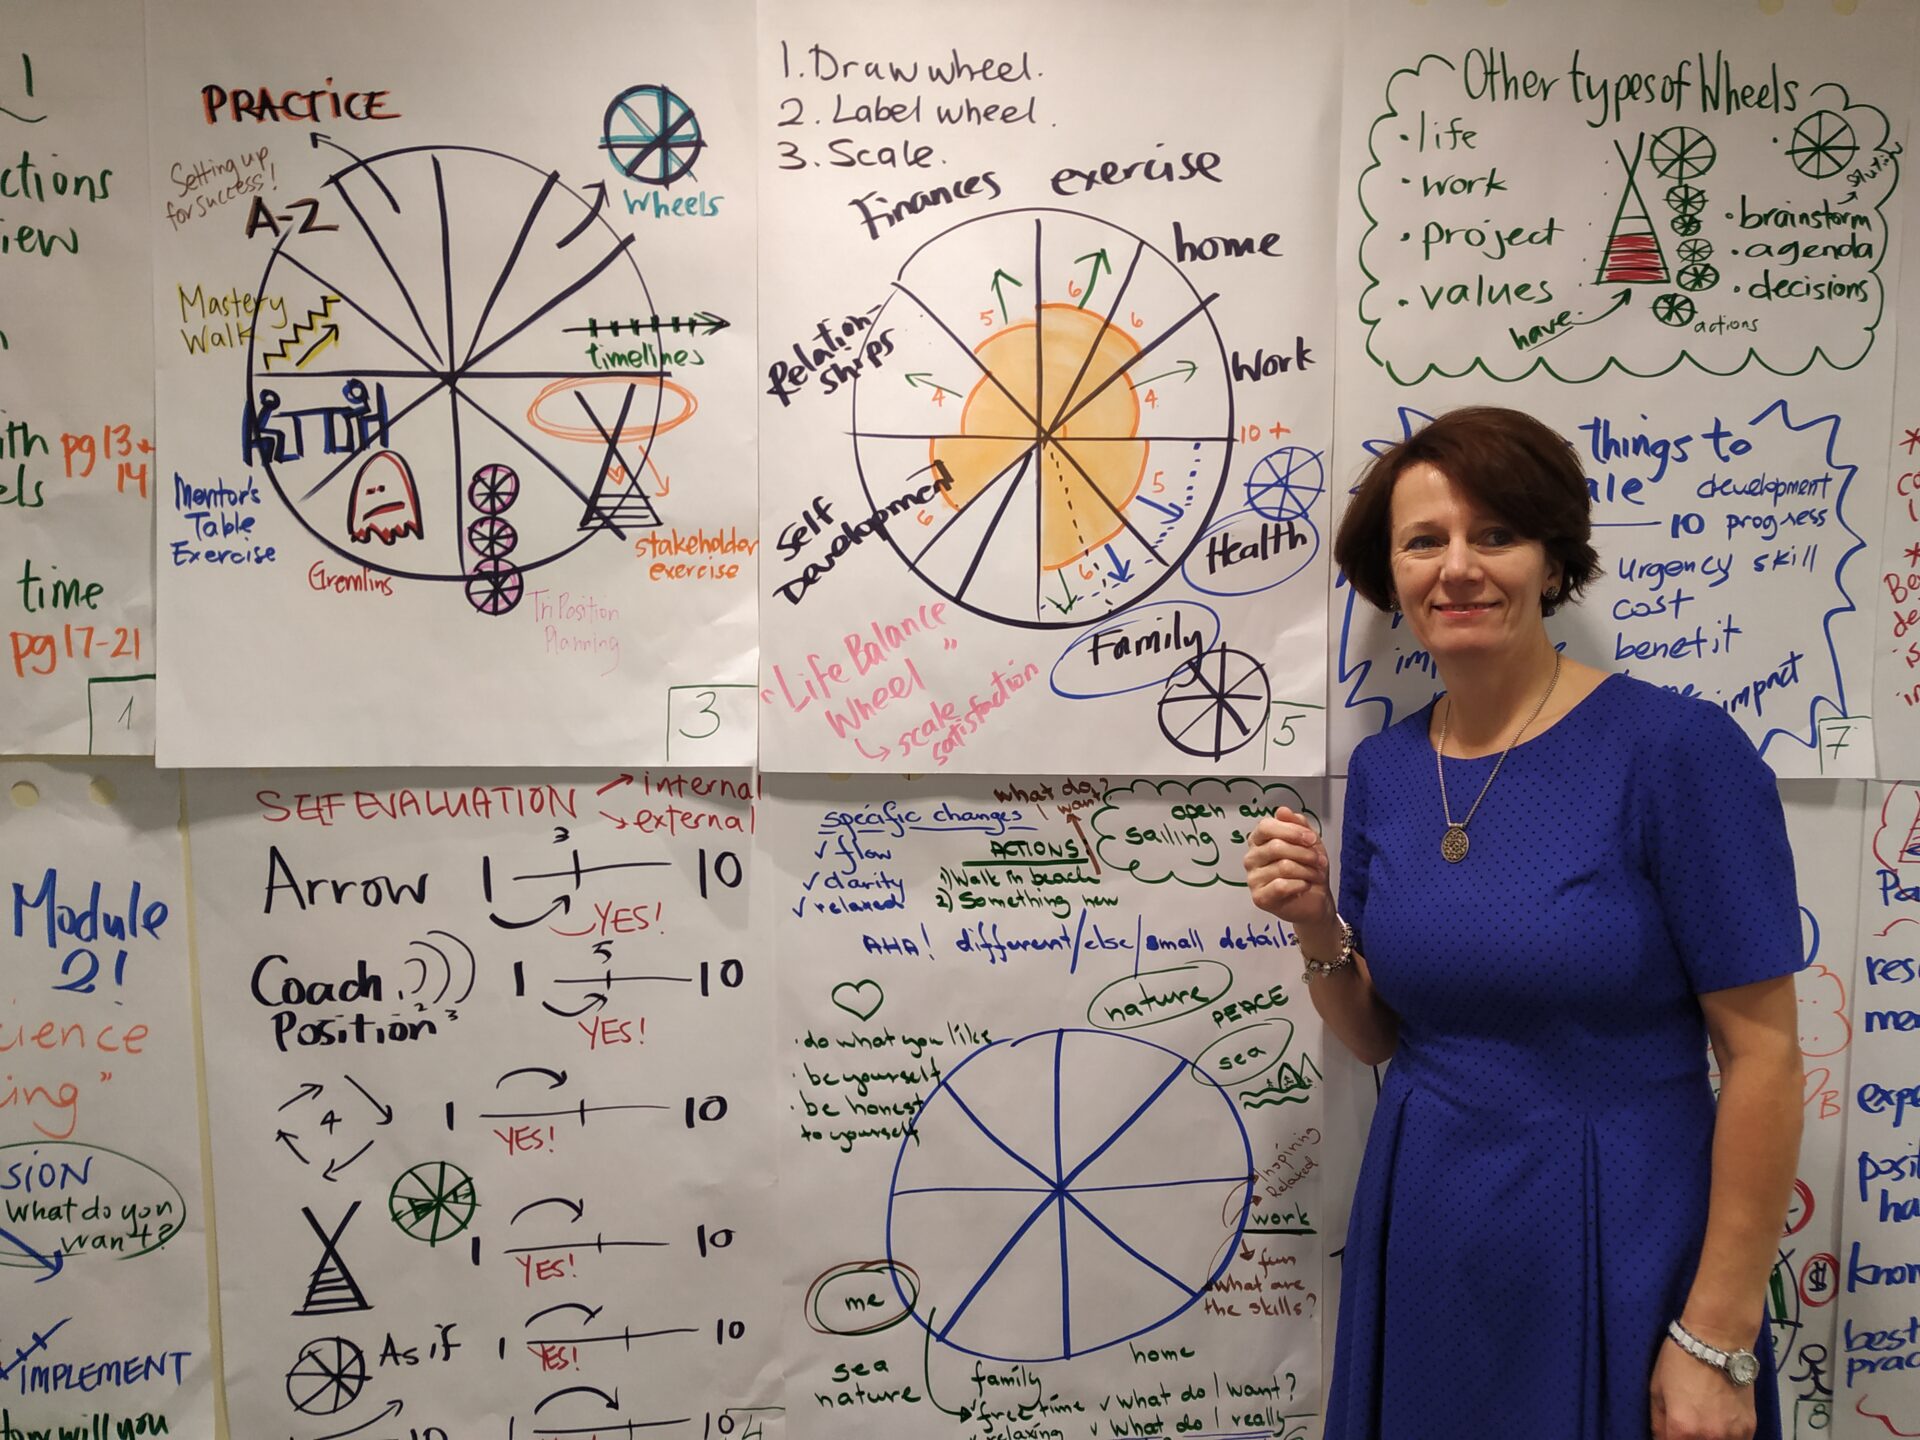 1
ctions
iew
ith pg13+
els 14
time
pg17-21
1
PRACTICE
Setting up
for success!
A-Z
Wheels
Mastery
Walk
timelines
Mentor's
Table
Exercise
Gremlins
Tri Position
Planning
stakeholder
exercise
3
1. Draw wheel.
2. Label wheel.
3. Scale.
Finances exercise
home
Relation-
ships
Work
5
6
6
4
4
10+
5
6
6
Self
Development
Health
Family
"Life Balance
Wheel"
scale
satisfaction
5
Other types of Wheels
· life
· work
· project
· values
have
· brainstorm
· agenda
· decisions
actions
things to
ale development
10 progress
urgency skill
cost
benefit
impact
7
Module
2!
cience
ing"
SION
What do you
want?
IMPLEMENT
How will you
SELF EVALUATION
internal
external
Arrow 1 3 10
YES!
Coach 1 5 10
Position 2 3
YES!
4 1 10
YES!
1 10
YES!
As if 1 10
YES!
10 1 10
4
specific changes
✓ flow
✓ clarity
✓ relaxed
what do
I want?
ACTIONS:
1) Walk in beach
2) Something new
open air
sailing s
AHA! different/else/small details
nature
PEACE
sea
· do what you like
· be yourself
· be honest
to yourself
Inspiring
Relaxed
work
fun
what are
the skills?
me
sea
nature
family
home
✓ free time ✓ What do I want?
✓ relaxing ✓ What do I really
res
expe
posit
ha
know
best
prac
8